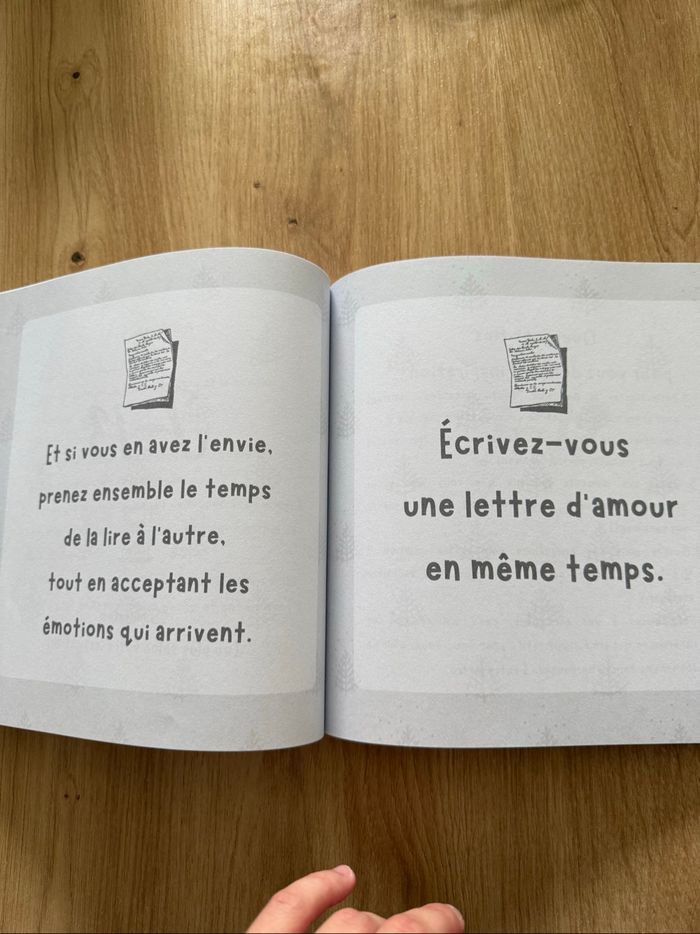 Et si vous en avez l'envie,
prenez ensemble le temps
de la lire à l'autre,
tout en acceptant les
émotions qui arrivent.
Écrivez-vous
une lettre d'amour
en même temps.